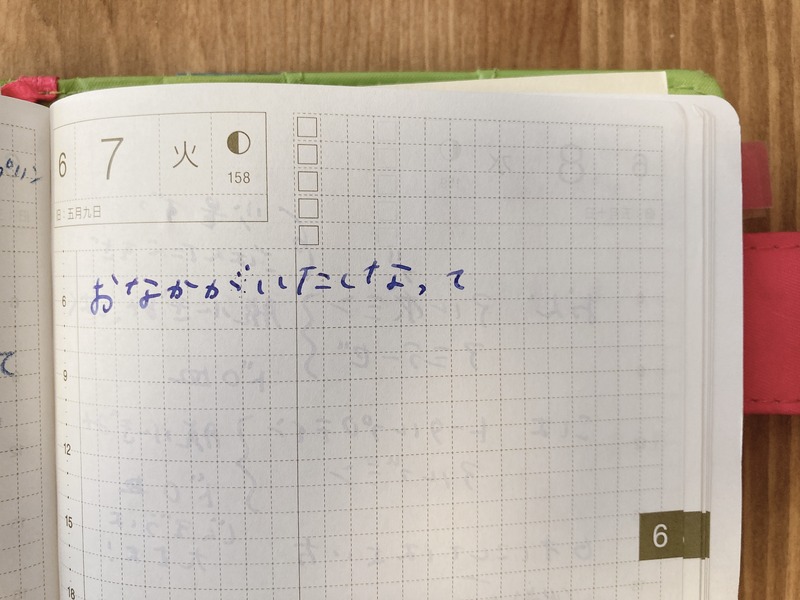 6 7 火
158
五月九日
おなかがいたくなって
6
9
12
15
18
6